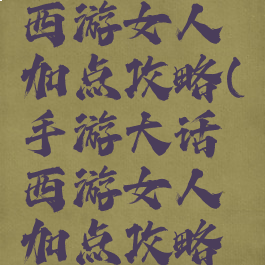 西游女人
加点攻略(
手游大话
西游女人
加点攻略